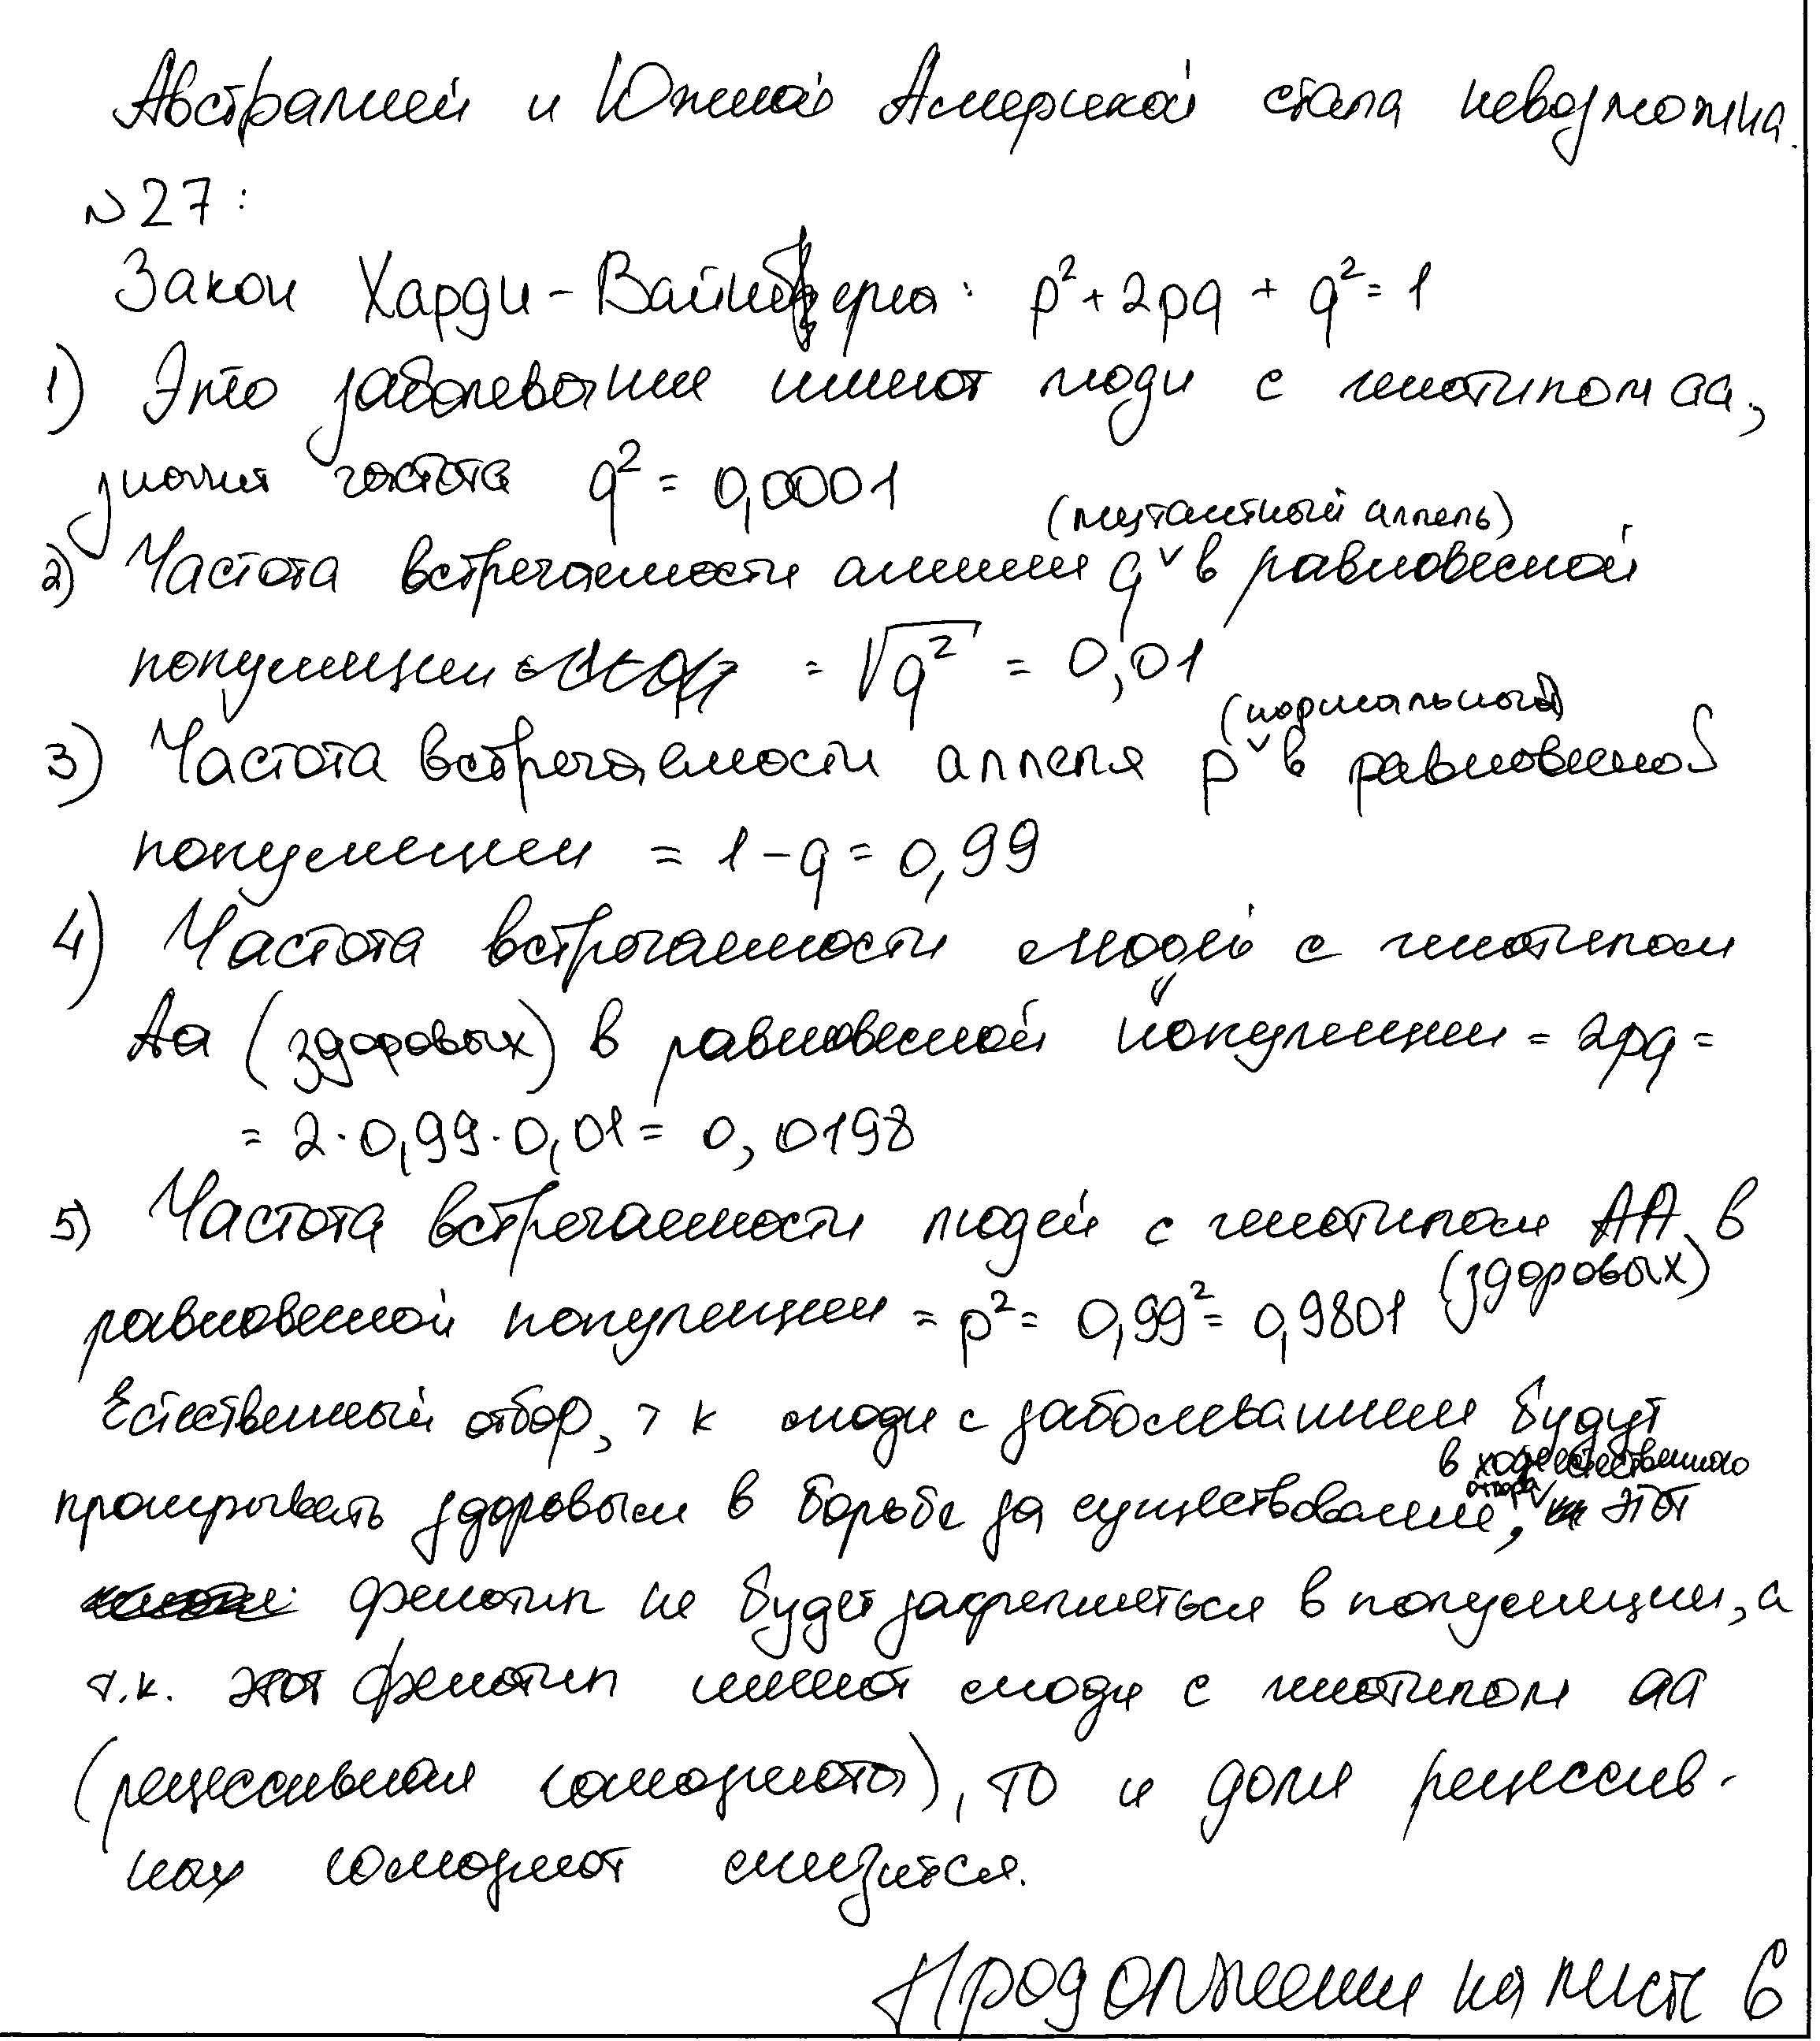 Австралией и Южной Америкой стала невозможна.
№27:
Закон Харди-Вайнберга: p²+2pq+q²=1
1) Это заболевание имеют люди с генотипом aa,
значит частота q² = 0,0001
(мутантный аллель)
2) Частота встречаемости аллели q в равновесной
популяции = √q² = 0,01
(нормальный)
3) Частота встречаемости аллеля p в равновесной
популяции = 1-q = 0,99
4) Частота встречаемости людей с генотипом
Aa (здоровых) в равновесной популяции = 2pq =
= 2·0,99·0,01 = 0,0198
5) Частота встречаемости людей с генотипом AA в
равновесной популяции = p² = 0,99² = 0,9801 (здоровых)
Естественный отбор, т к люди с заболеванием будут
в ходе естественного
отбора
проигрывать здоровым в борьбе за существование, этот
фенотип не будет закрепляться в популяции, а
т.к. этот фенотип имеют люди с генотипом aa
(рецессивная гомозигота), то и доля рецессив-
ных гомозигот снизится.
Продолжение на листе 6